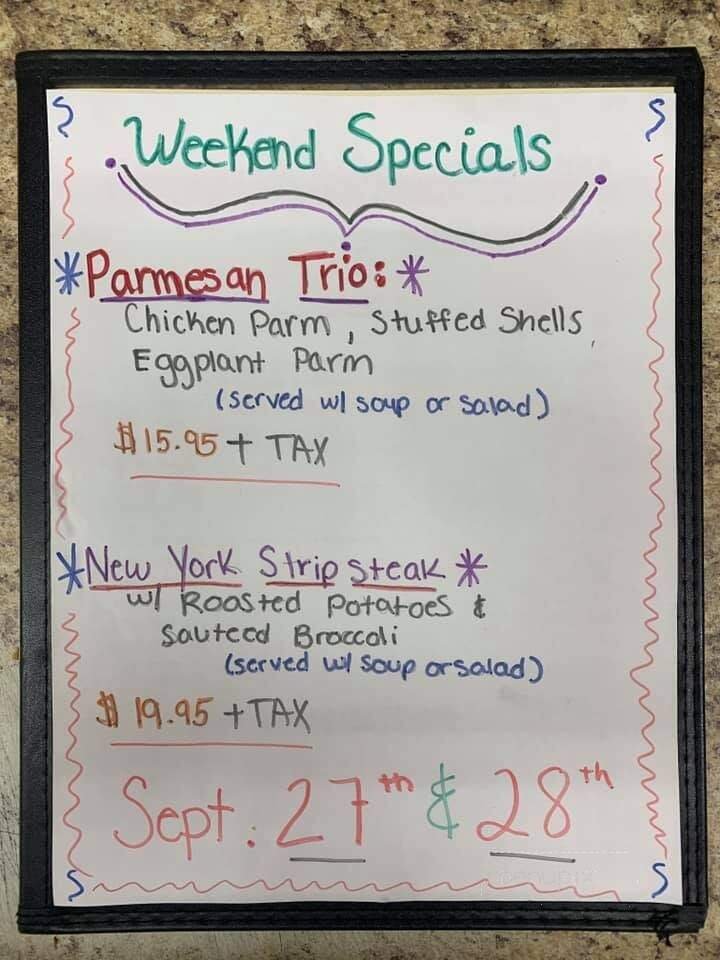 Weekend Specials
*Parmesan Trio:*
Chicken Parm, Stuffed Shells,
Eggplant Parm
(served w/ soup or salad)
$15.95 + TAX
*New York Strip Steak*
w/ Roosted Potatoes &
Sauteed Broccoli
(served w/ soup or salad)
$19.95 + TAX
Sept. 27th & 28th